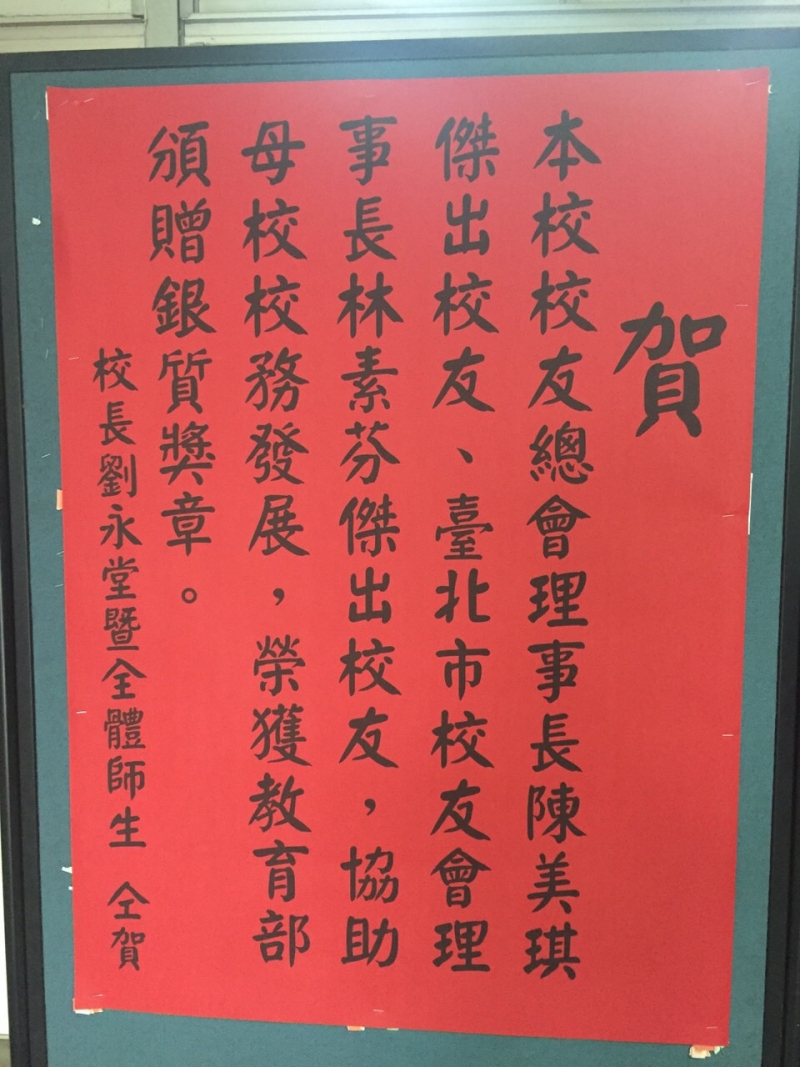 賀
本校校友總會理事長陳美琪
傑出校友、臺北市校友會理
事長林素芬傑出校友，協助
母校校務發展，榮獲教育部
頒贈銀質獎章。
校長劉永堂暨全體師生 仝賀